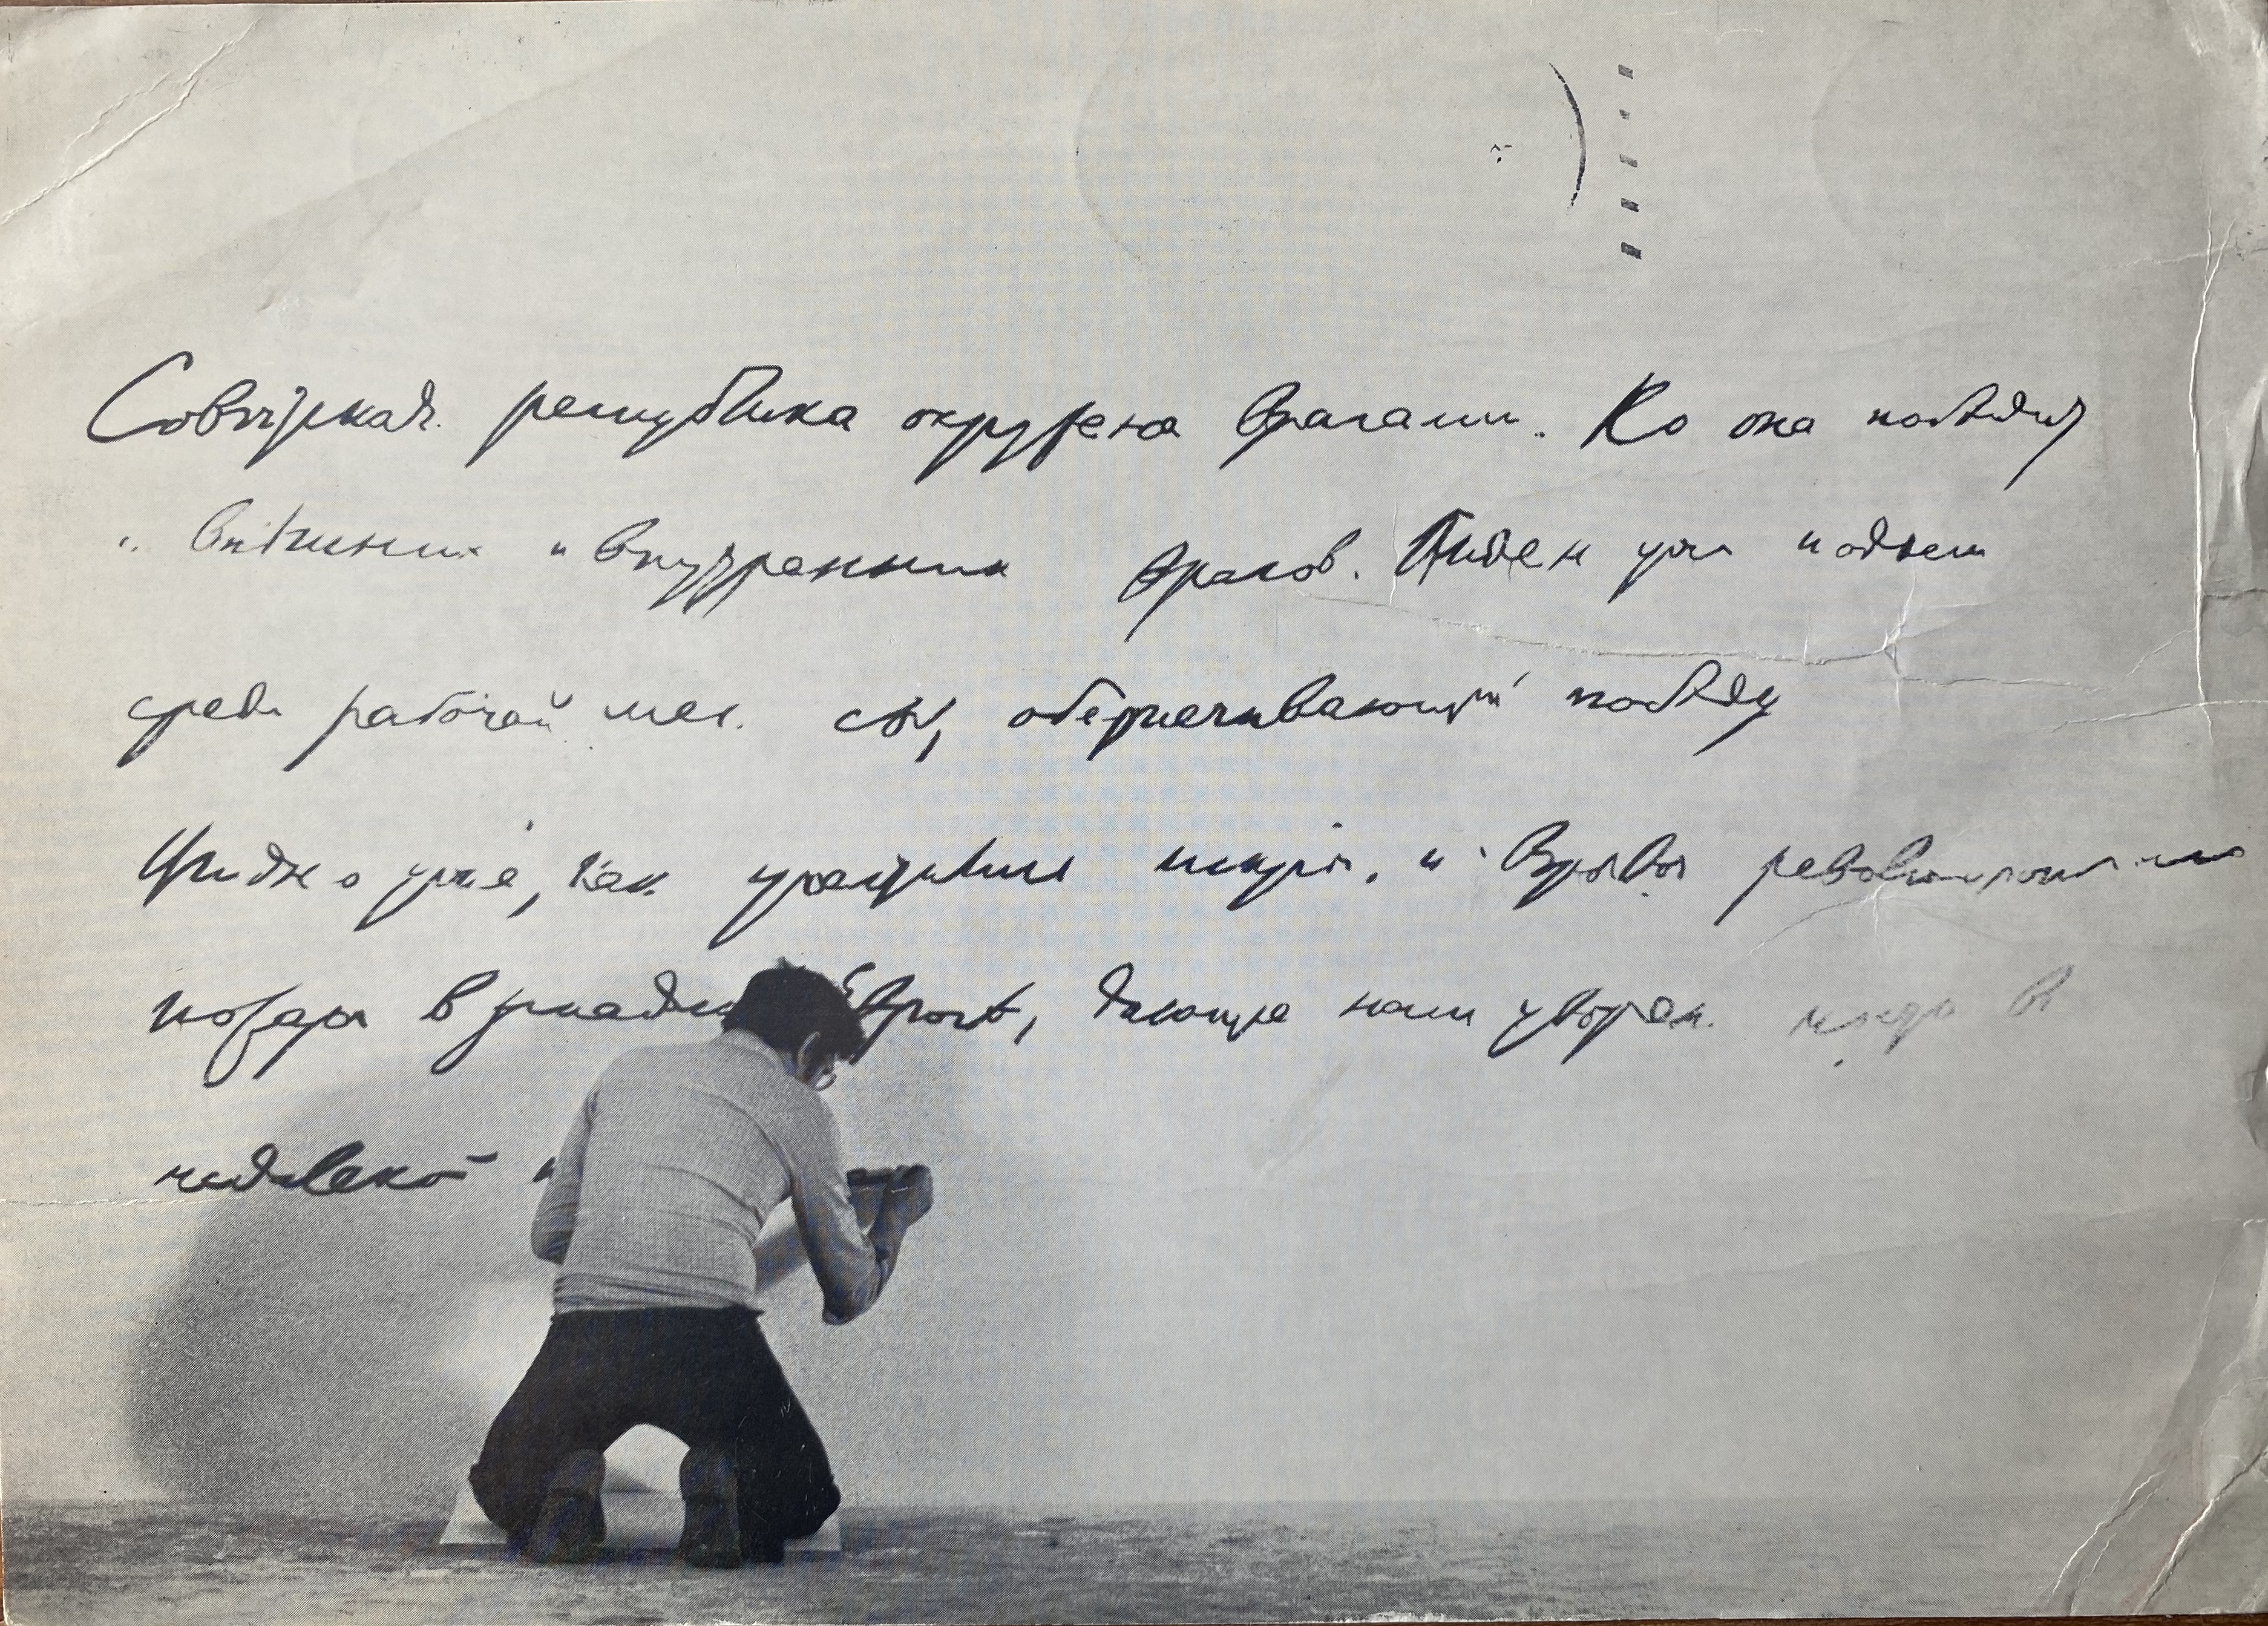 Советская республика окружена врагами. Но она победит
и внѣшних и внутренних врагов. Виден уже подъем
среди рабочей мас. сы, обеспечивающий победу
Видно уже, как участились искры и взрывы революционного
пожара в западной Европѣ, дающие нам уверен.
недалекой и